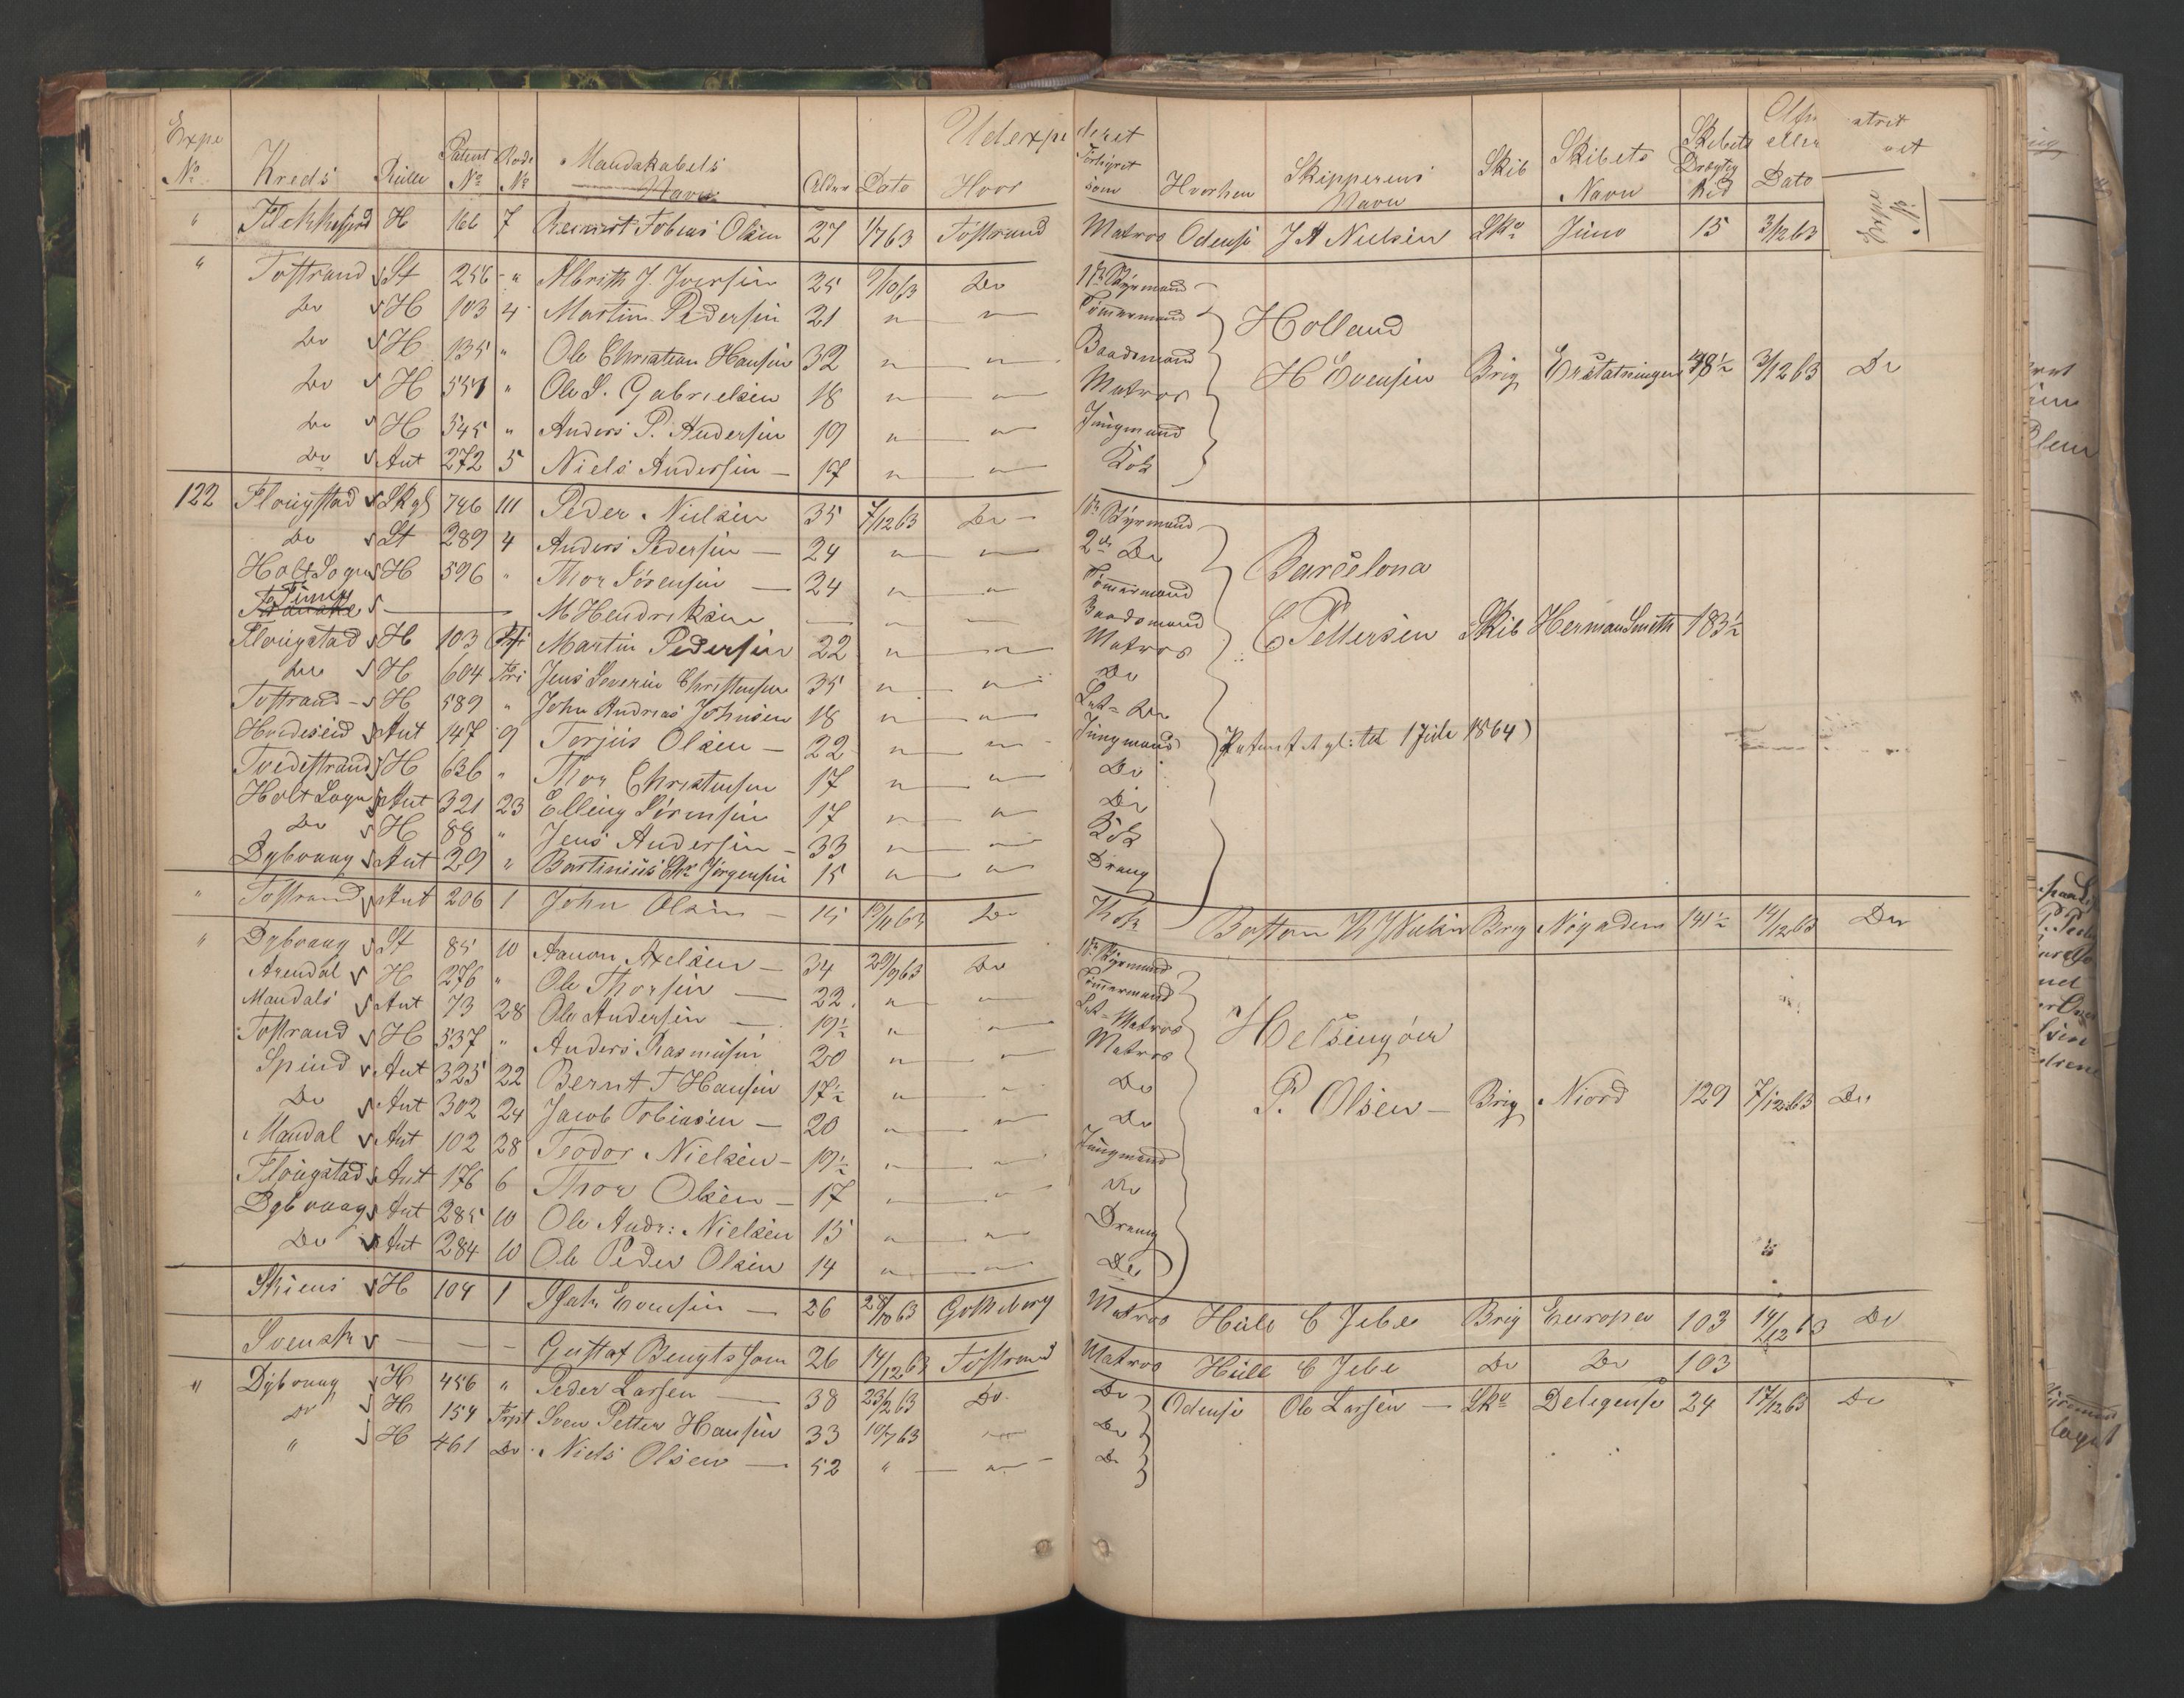 Expe No. Kreds Rulle Patent No Rode No Mandskabets Navn Alder Dato Udexpederet Hvor Forhyret som Hvorhen Skipperens Navn Skib Skibets Navn Skibets Drægtighed Dato
" H 7 Tobias Olsen 27 1/7 63 Tostrand Matros Odense J A Nielsen Juno 15 3/12 63
" Tostrand St 256 " J. Iversen 25 9/10 63 Do 1ste Styrmand
Do H 103 4 Martin Pedersen 21 " " Tømmermand Holland
Do H 135 " Ole Christian Hansen 32 " " Baadsmand
Do H " Ole S. Gabrielsen 18 " " Matros H Evensen Brig Erstatningen 3/12 63 Do
Do H 345 " Anders P. Andersen 19 " " Jungmand
Do Ant 272 5 Niels Andersen — 17 " " Kok
122 Flougstad 746 111 Peder Nielsen 35 7/12 63 Do 1ste Styrmand
Do St 289 4 Anders Pedersen — 24 " " 2den Do
Holt Sogn H 596 " Thor Sørensen — 24 " " Tømmermand Barcelona
M Hendriksen — " " Baadsmand
Flougstad H 103 Martin Pedersen 22 " " Matros C Pettersen Skib Herman Smith 183½
Do H 604 Jens Severin Christensen 35 " " Do
Tostrand H 589 " John Andreas Johnsen 18 " " Let- Do
Hvideseid Ant 147 9 Terjus Olsen — 22 " " Jungmand Patent 1 Juli 1864)
Tvedestrand H 636 " Thor Christensen 17 " " Do
Holt Sogn Ant 321 23 Elling Sørensen 17 " " Do
Do H 88 " Jens Andersen — 33 " " Kok
Dybvaag Ant 29 " Jørgensen 15 " " Dreng
" Tostrand Ant 206 1 John Olsen — 15 Do Kok Boston Brig 141½ 14/12 63 Do
" Dybvaag St 85 10 Aanon Axelsen — 34 29/9 63 Do 1ste Styrmand
Arendal H 276 " Ole Thorsen — 22 " " Tømmermand
Mandals Ant 73 28 Ole Andersen — 19½ " " Let- Matros
Tostrand H 537 " Anders Rasmusen 20 " " Matros Helsingöer
Spind Ant 325 22 Bernt T Hansen 17½ " " Do
Do Ant 302 24 Jacob Tobiasen — 20 " " Do P. Olsen — Brig Niord 129 7/12 63 Do
Mandal Ant 102 28 Teodor Nielsen — 19½ " " Jungmand
Flougstad Ant 176 6 Thor Olsen — 17 " " Do
Dybvaag Ant 285 10 Ole Andr: Nielsen 15 " " Dreng
Do Ant 284 10 Ole Peder Olsen 14 " " Do
Skiens H 104 1 Isak Evensen — 26 28/10 63 Gotheborg Matros Hull C Jebe Brig Europa 103 14/12 63 Do
Svensk — — Gustaf Bengtsson 26 14/12 63 Tostrand Matros Hull C Jebe Do Do 103
" Dybvaag H 456 " Peder Larsen — 38 Do Do Odense Ole Larsen — Deligense 24 17/12 63 Do
Do H 154 Sven Petter Hansen 33 10/7 63 " Do
" H 461 Do Niels Olsen — 52 " " Do